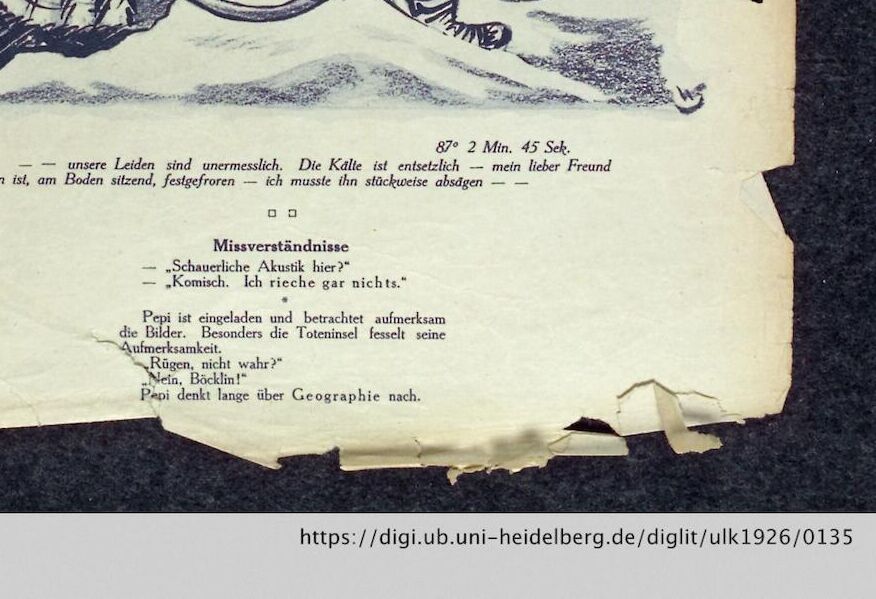 87° 2 Min. 45 Sek.
— — unsere Leiden sind unermesslich. Die Kälte ist entsetzlich — mein lieber Freund
n ist, am Boden sitzend, festgefroren — ich musste ihn stückweise absägen — —
Missverständnisse
— „Schauerliche Akustik hier?“
— „Komisch. Ich rieche gar nichts.“
*
Pepi ist eingeladen und betrachtet aufmerksam
die Bilder. Besonders die Toteninsel fesselt seine
Aufmerksamkeit.
„Rügen, nicht wahr?“
„Nein, Böcklin!“
Pepi denkt lange über Geographie nach.
https://digi.ub.uni-heidelberg.de/diglit/ulk1926/0135